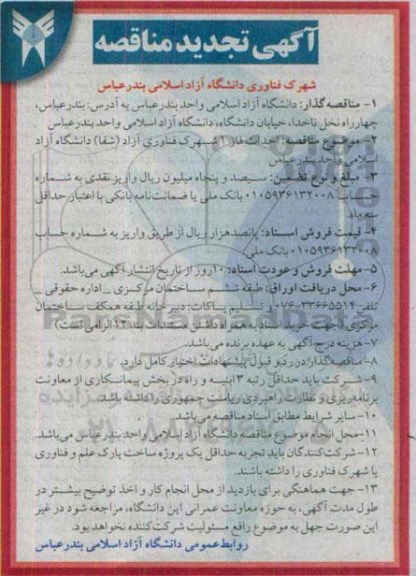 آگهی تجدید مناقصه
شهرک فناوری دانشگاه آزاد اسلامی بندرعباس
۱- مناقصه گذار: دانشگاه آزاد اسلامی واحد بندرعباس به آدرس: بندرعباس،
چهارراه نخل ناخدا، خیابان دانشگاه، دانشگاه آزاد اسلامی واحد بندرعباس
۲- موضوع مناقصه: احداث فاز ۱ شهرک فناوری آزاد (شفا) دانشگاه آزاد
اسلامی واحد بندرعباس
۳- مبلغ و نوع تضمین: سیصد و پنجاه میلیون ریال واریز نقدی به شماره
حساب ۰۱۰۵۹۳۶۱۳۲۰۰۸ بانک ملی یا ضمانت‌نامه بانکی با اعتبار حداقل
سه ماه
۴- قیمت فروش اسناد: پانصدهزار ریال از طریق واریز به شماره حساب
۰۱۰۵۹۳۶۱۳۲۰۰۸ بانک ملی
۵- مهلت فروش و عودت اسناد: ۱۰روز از تاریخ انتشار آگهی می‌باشد.
۶- محل دریافت اوراق: طبقه ششم ساختمان مرکزی _ اداره حقوقی _
تلفن ۳۳۶۶۵۵۱۴-۰۷۶ و تسلیم پاکات: دبیرخانه طبقه همکف ساختمان
مرکزی (جهت خرید اسناد به همراه داشتن مستندات بند ۱۲ الزامی است)
۷- هزینه درج آگهی به عهده برنده می‌باشد.
۸- مناقصه گذار در رد و قبول پیشنهادات اختیار کامل دارد.
۹- شرکت باید حداقل رتبه ۳ ابنیه و راه در بخش پیمانکاری از معاونت
برنامه‌ریزی و نظارت راهبردی ریاست جمهوری را داشته باشد.
۱۰- سایر شرایط مطابق اسناد مناقصه می‌باشد.
۱۱- محل انجام موضوع مناقصه دانشگاه آزاد اسلامی واحد بندرعباس می‌باشد.
۱۲- شرکت‌کنندگان باید تجربه حداقل یک پروژه ساخت پارک علم و فناوری
یا شهرک فناوری را داشته باشند.
۱۳- جهت هماهنگی برای بازدید از محل انجام کار و اخذ توضیح بیشتر در
طول مدت آگهی، به حوزه معاونت عمرانی این دانشگاه، مراجعه شود در غیر
این صورت جهل به موضوع رافع مسئولیت شرکت‌کننده نخواهد بود.
روابط عمومی دانشگاه آزاد اسلامی بندرعباس
ParsNamadData